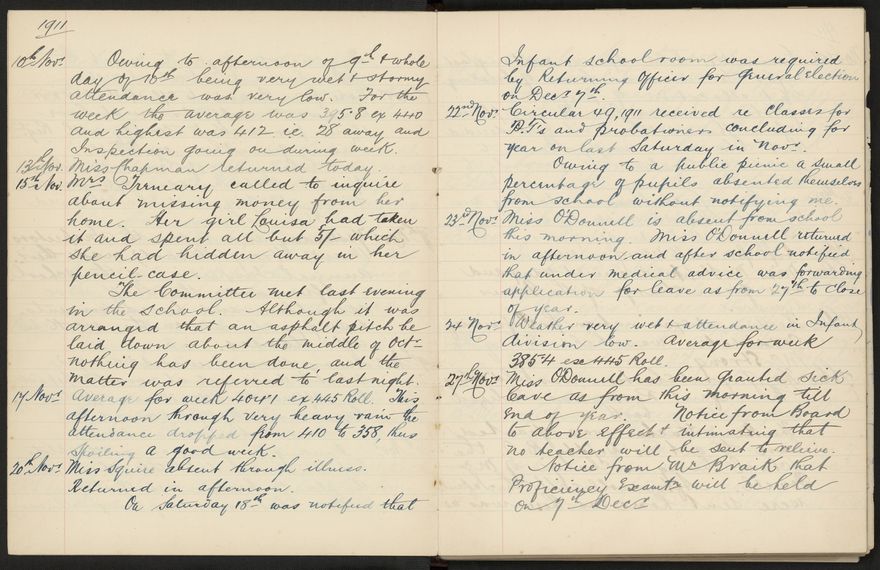 1911
10th Novr Owing to afternoon of 9th & whole
day of 10th being very wet & stormy
attendance was very low. For the
week the average was 395.8 ex 440
and highest was 412 i.e. 28 away and
Inspection going on during week.
13th Nov. Miss Chapman returned today.
15th Nov. Mrs called to inquire
about missing money from her
home. Her girl Louisa had taken
it and spent all but 5/- which
she had hidden away in her
pencil case.
The Committee met last evening
in the School. Although it was
arranged that an asphalt pitch be
laid down about the middle of Octr
nothing has been done, and the
matter was referred to last night.
17 Novr Average for week 404.1 ex 445 Roll. This
afternoon through very heavy rain the
attendance dropped from 410 to 358, thus
spoiling a good week.
20th Novr Miss Squire absent through illness.
Returned in afternoon.
On Saturday 18th was notified that
Infant school room was required
by Returning Officer for General Election
on Decr 7th.
22nd Novr Circular 49, 1911 received re Classes for
P.T's and probationers concluding for
year on last Saturday in Novr.
Owing to a public picnic a small
percentage of pupils absented themselves
from school without notifying me.
23rd Novr Miss O'Donnell is absent from school
this morning. Miss O'Donnell returned
in afternoon and after school notified
that under medical advice was forwarding
application for leave as from 27th to close
of year.
24 Novr Weather very wet & attendance in Infant
division low. Average for week
385.4 exc 445 Roll.
27th Novr Miss O'Donnell has been granted sick
leave as from this morning till
end of year. Notice from Board
to above effect & intimating that
no teacher will be sent to relieve.
Notice from Mr Braik that
Proficiency Examtn will be held
on 7th Decr